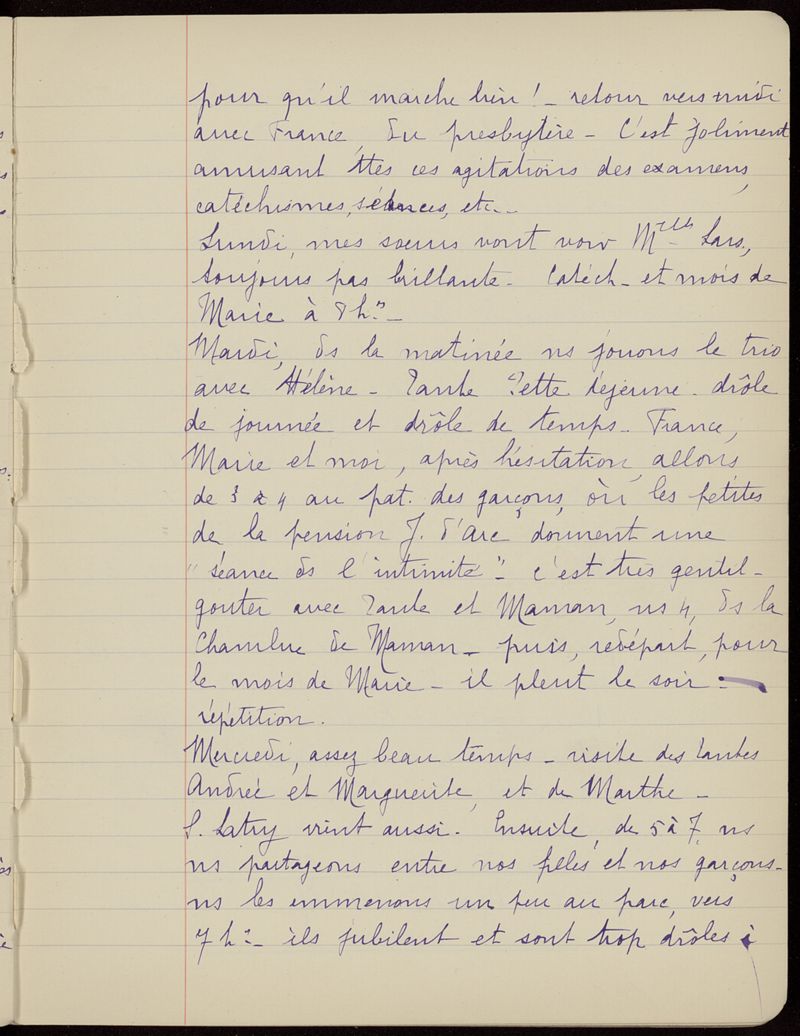 pour qu'il marche bien ! – retour vers midi
avec France, du presbytère – C'est joliment
amusant ttes ces agitations des examens,
catéchismes, séances, etc..
Lundi, mes soeurs vont voir Melles Lars.,
toujours pas brillante – Catéch – et mois de
Marie à 8 h. –
Mardi, ds la matinée ns jouons le trio
avec Hélène – Tante Cette déjeune – drôle
de journée et drôle de temps – France,
Marie et moi, après hésitation, allons
de 3 à 4 au pat. des garçons, où les petites
de la pension J. d'Arc donnent une
"séance ds l'intimité" – c'est très gentil –
goûter avec Tante et Maman, ns 4, ds la
Chambre de Maman – puis, redépart, pour
le mois de Marie – il pleut le soir :
répétition.
Mercredi, assez beau temps – visite des tantes
Andrée et Marguerite, et de Marthe –
S. Latry vient aussi. Ensuite, de 5 à 7, ns
ns partageons entre nos filles et nos garçons –
ns les emmenons un peu au parc, vers
7 h. – ils jubilent et sont trop drôles à